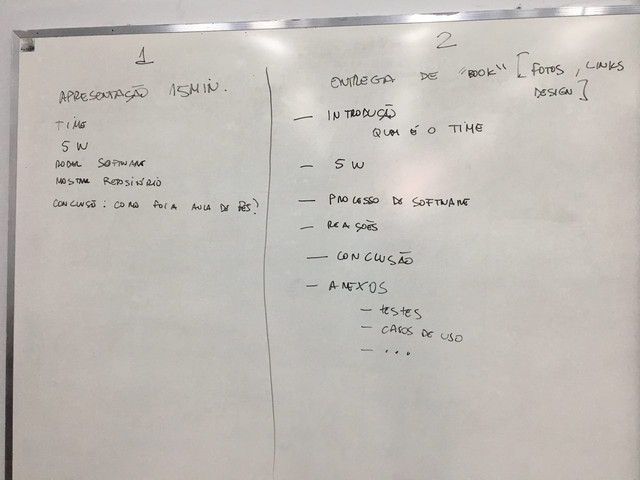 1
APRESENTAÇÃO 15MIN.
TIME
5 W
RODAR SOFTWARE
MOSTRAR REPOSITÓRIO
CONCLUSÃO: COMO FOI A AULA DE PES?
2
ENTREGA DE "BOOK" [FOTOS, LINKS
DESIGN]
— INTRODUÇÃO
QUAL É O TIME
— 5 W
— PROCESSO DE SOFTWARE
— REAÇÕES
— CONCLUSÃO
— ANEXOS
— TESTES
— CASOS DE USO
— ...